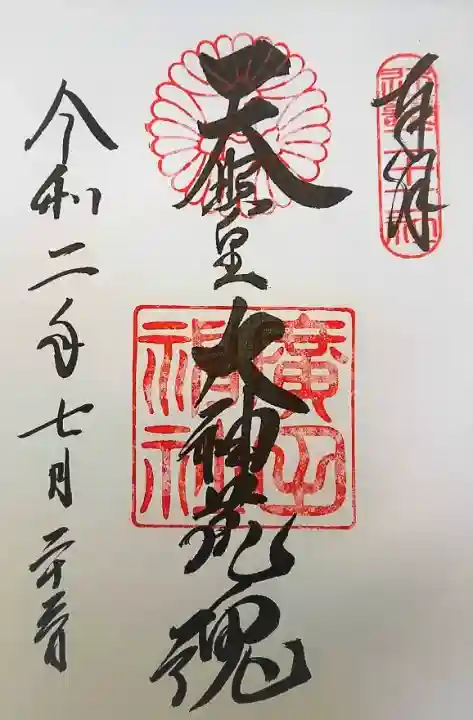 奉拝
天照皇大神荒魂
廣田
神社
令和二年七月二十三日